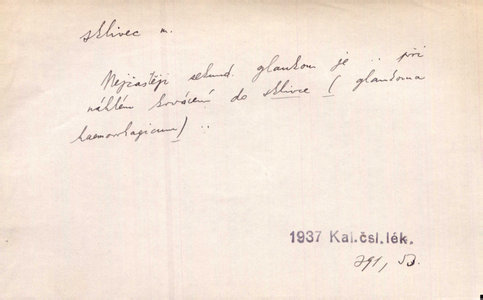 sklivec m.
Nejčastěji sekund. glaukom je .. při
náhlém krvácení do sklivce (glaukoma
haemorrhagicum) ..
1937 Kal.čsl.lék.
291,